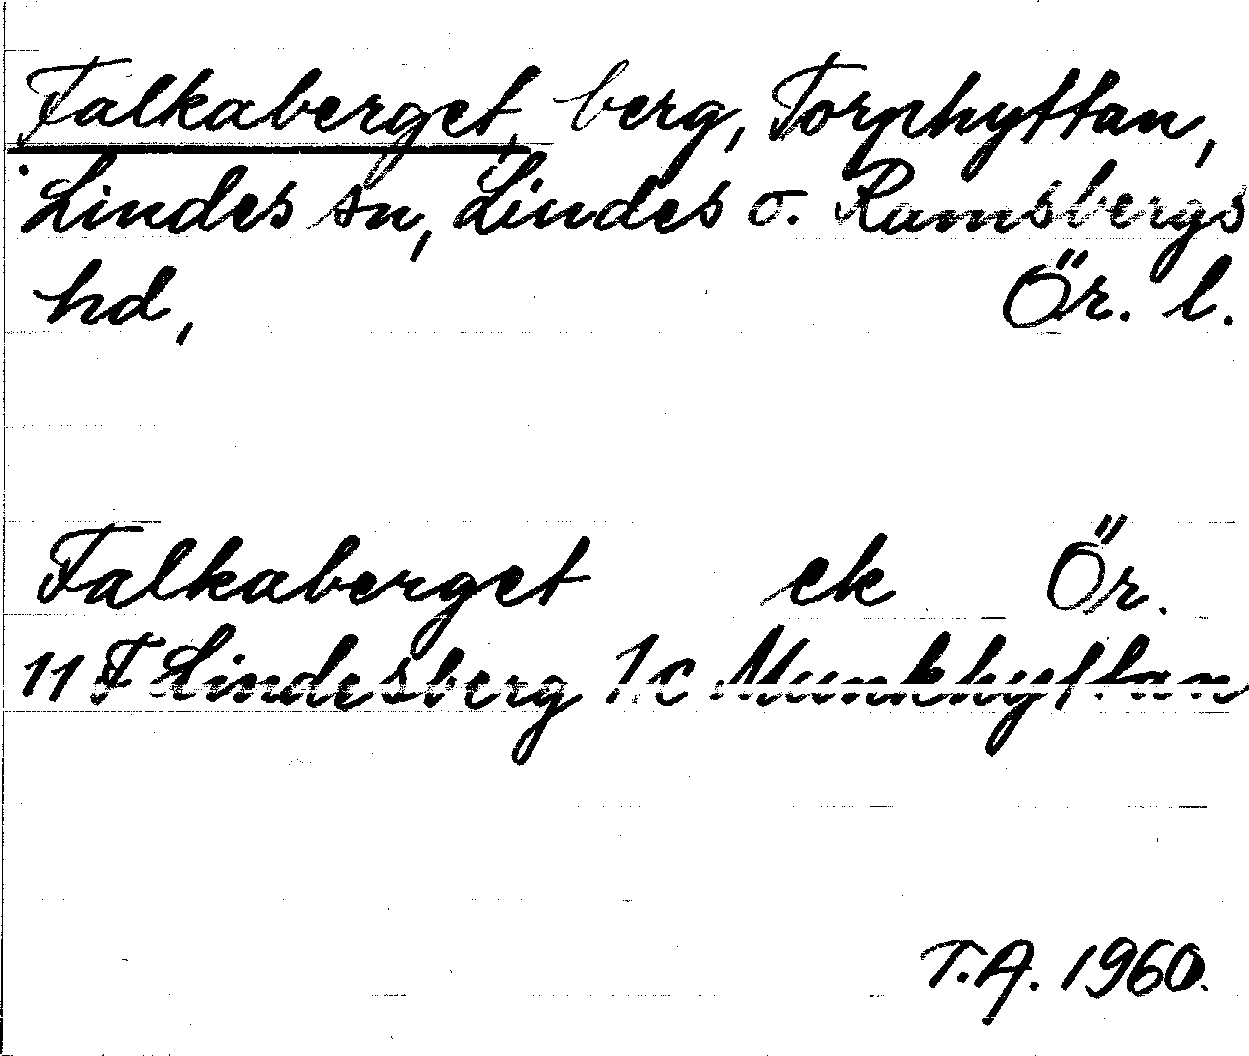 Falkaberget, berg, Torphyttan,
Lindes sn, Lindes o. Ramsbergs
hd, Ör. l.
Falkaberget ek Ör.
11 F Lindesberg 1c Munkhyttan
T.A. 1960.